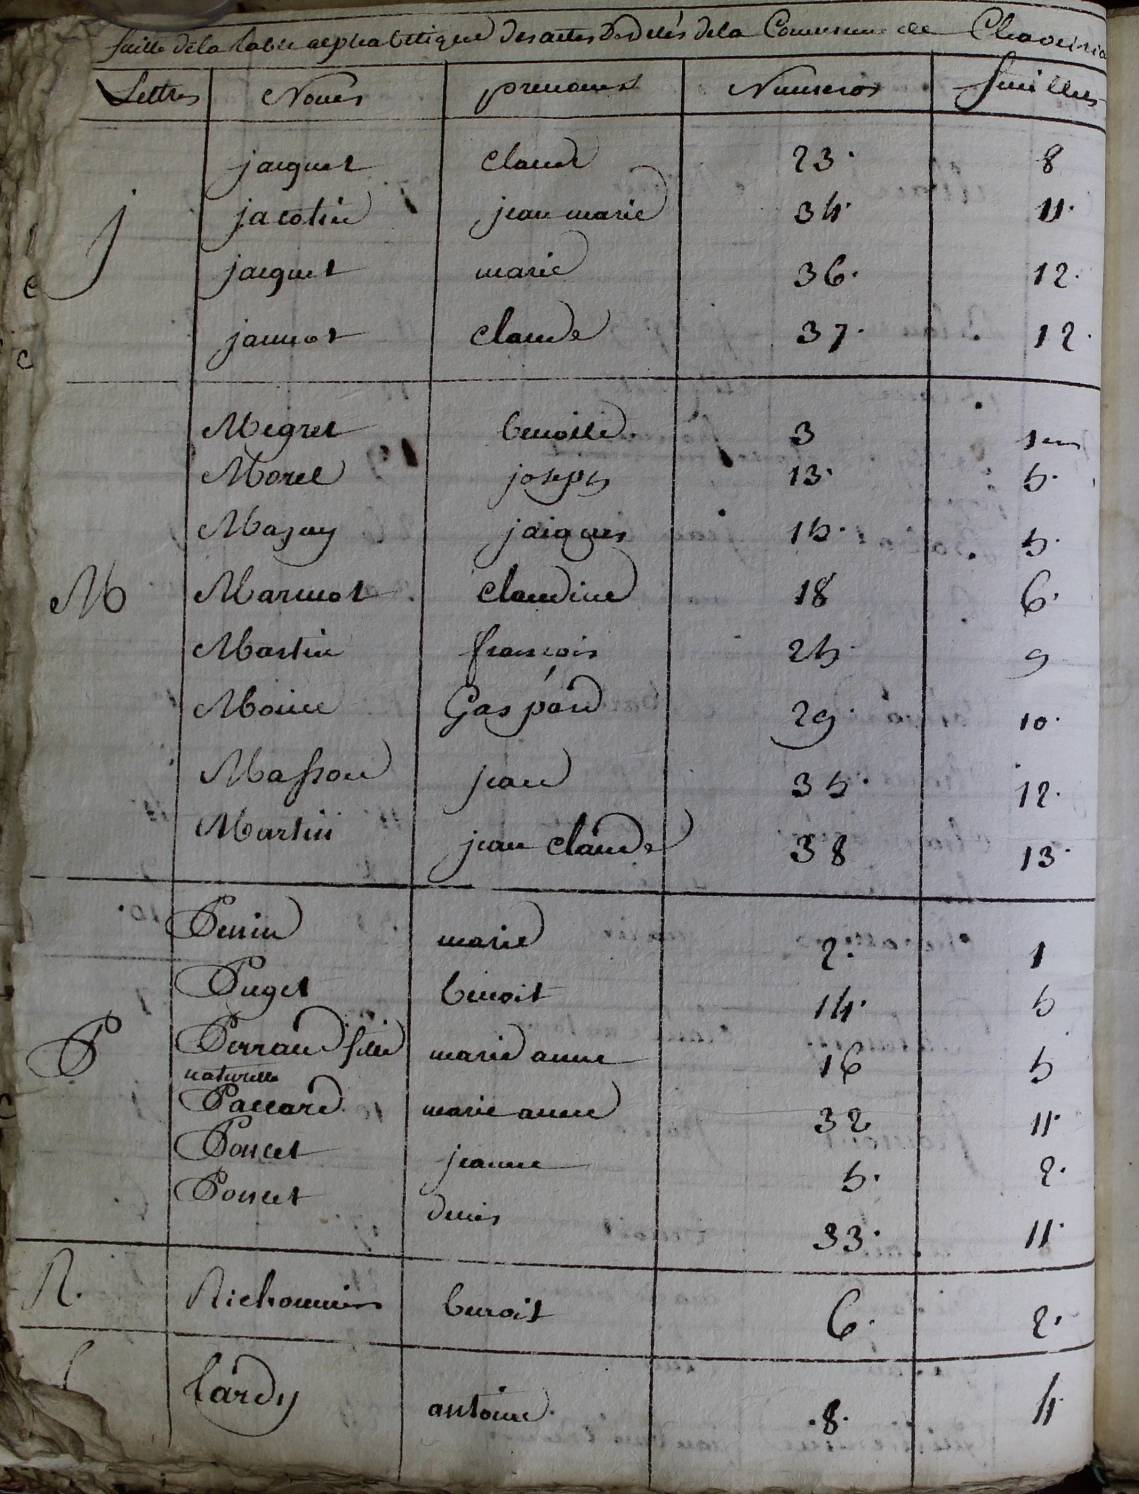 suitte de la table alphabetique des actes de deces de la Commune de Chaveiria
Lettres Noms prenoms Numeros feuilles
jacquet claude 23. 8
j jacotin jean marie 34. 11.
jacquet marie 36. 12.
jannot claude 37. 12.
Megret benoite 3 1er
Morel joseph 13. 5.
Mazuy jaiques 15. 5.
M Marmot claudine 18 6.
Martin francois 25. 9
Moine Gaspard 29. 10.
Masson jean 35. 12.
Martin jean claude 38 13.
Perrin marie 2. 1
Puget benoit 14. 5
P Perraud fille marie anne 16 5
naturelle
Paccard marie anne 32 11.
Poncet jeanne 5. 2.
Poncet denis 33. 11.
R. Richonnier benoit 6. 2.
Sardy antoine. .8. 4